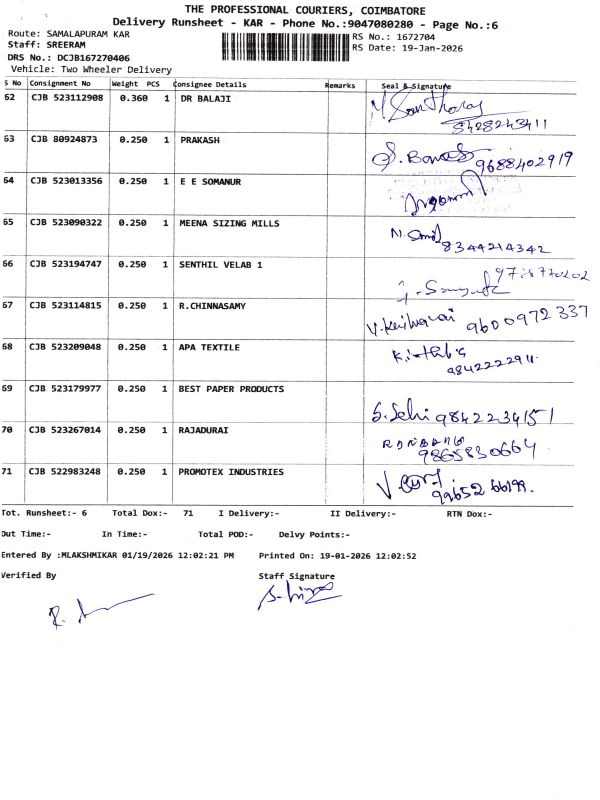 THE PROFESSIONAL COURIERS, COIMBATORE
Delivery Runsheet - KAR - Phone No.:9047080280 - Page No.:6
Route: SAMALAPURAM KAR
RS No.: 1672704
Staff: SREERAM
RS Date: 19-Jan-2026
DRS No.: DCJB167270406
Vehicle: Two Wheeler Delivery
S No Consignment No Weight PCS Consignee Details Remarks Seal & Signature
62 CJB 523112908 0.360 1 DR BALAJI
8428243411
63 CJB 80924873 0.250 1 PRAKASH
9688402919
64 CJB 523013356 0.250 1 E E SOMANUR
65 CJB 523090322 0.250 1 MEENA SIZING MILLS
8344214342
66 CJB 523194747 0.250 1 SENTHIL VELAB 1
67 CJB 523114815 0.250 1 R.CHINNASAMY
9600972337
68 CJB 523209048 0.250 1 APA TEXTILE
9842222911.
69 CJB 523179977 0.250 1 BEST PAPER PRODUCTS
9842234151
70 CJB 523267014 0.250 1 RAJADURAI
9865830664
71 CJB 522983248 0.250 1 PROMOTEX INDUSTRIES
Tot. Runsheet:- 6 Total Dox:- 71 I Delivery:- II Delivery:- RTN Dox:-
Out Time:- In Time:- Total POD:- Delvy Points:-
Entered By :MLAKSHMIKAR 01/19/2026 12:02:21 PM Printed On: 19-01-2026 12:02:52
Verified By Staff Signature